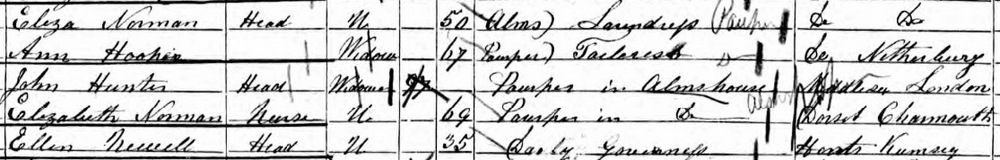 Eliza Norman Head U 50 Alms) Laundress Pauper Do Do
Ann Hooper Widow 67 Pauper) Tailoress Do Netherbury
John Hunter Head Widower 77 Pauper in Almshouse Middlesex London
Elizabeth Norman Nurse U 69 Pauper in Do Dorset Charmouth
Ellen Newell Head U 35 Daily Governess Hants Rumsey